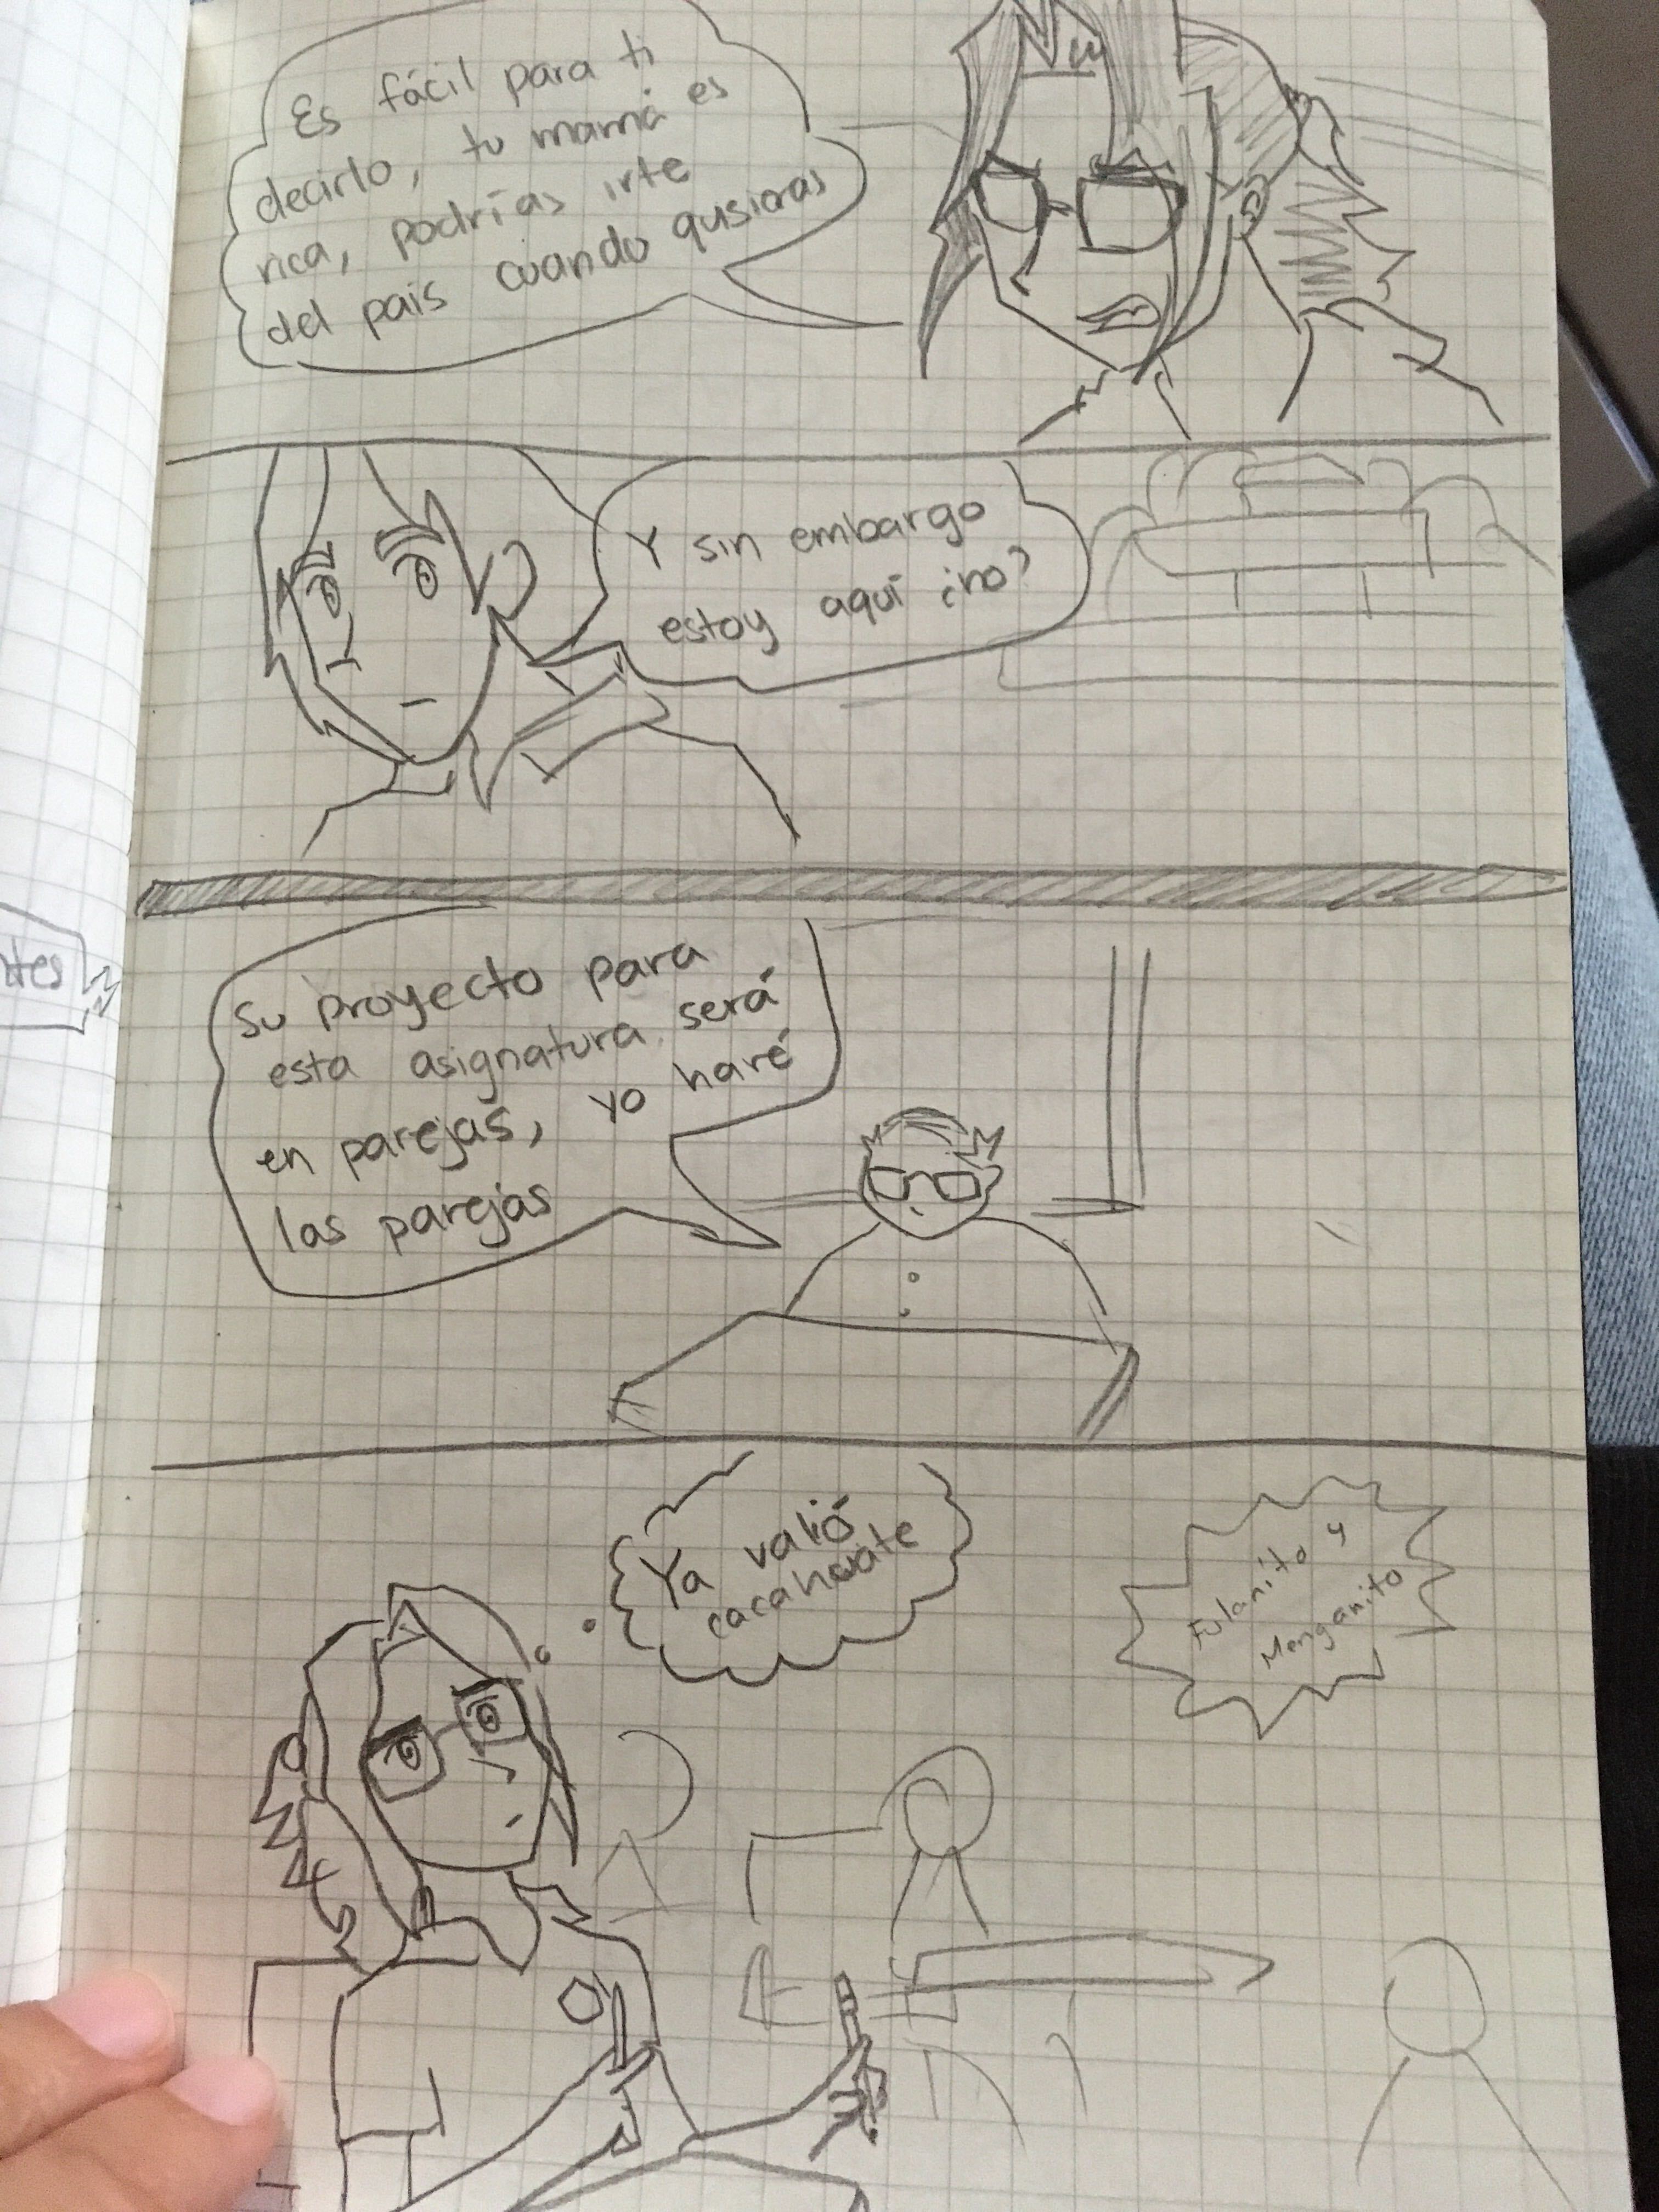 Es fácil para ti
decirlo, tu mamá es
rica, podrías irte
del país cuando qusieras
Y sin embargo
estoy aquí ¿no?
Su proyecto para
esta asignatura será
en parejas, yo haré
las parejas
Ya valió
cacahuate
Fulanito y
Menganito